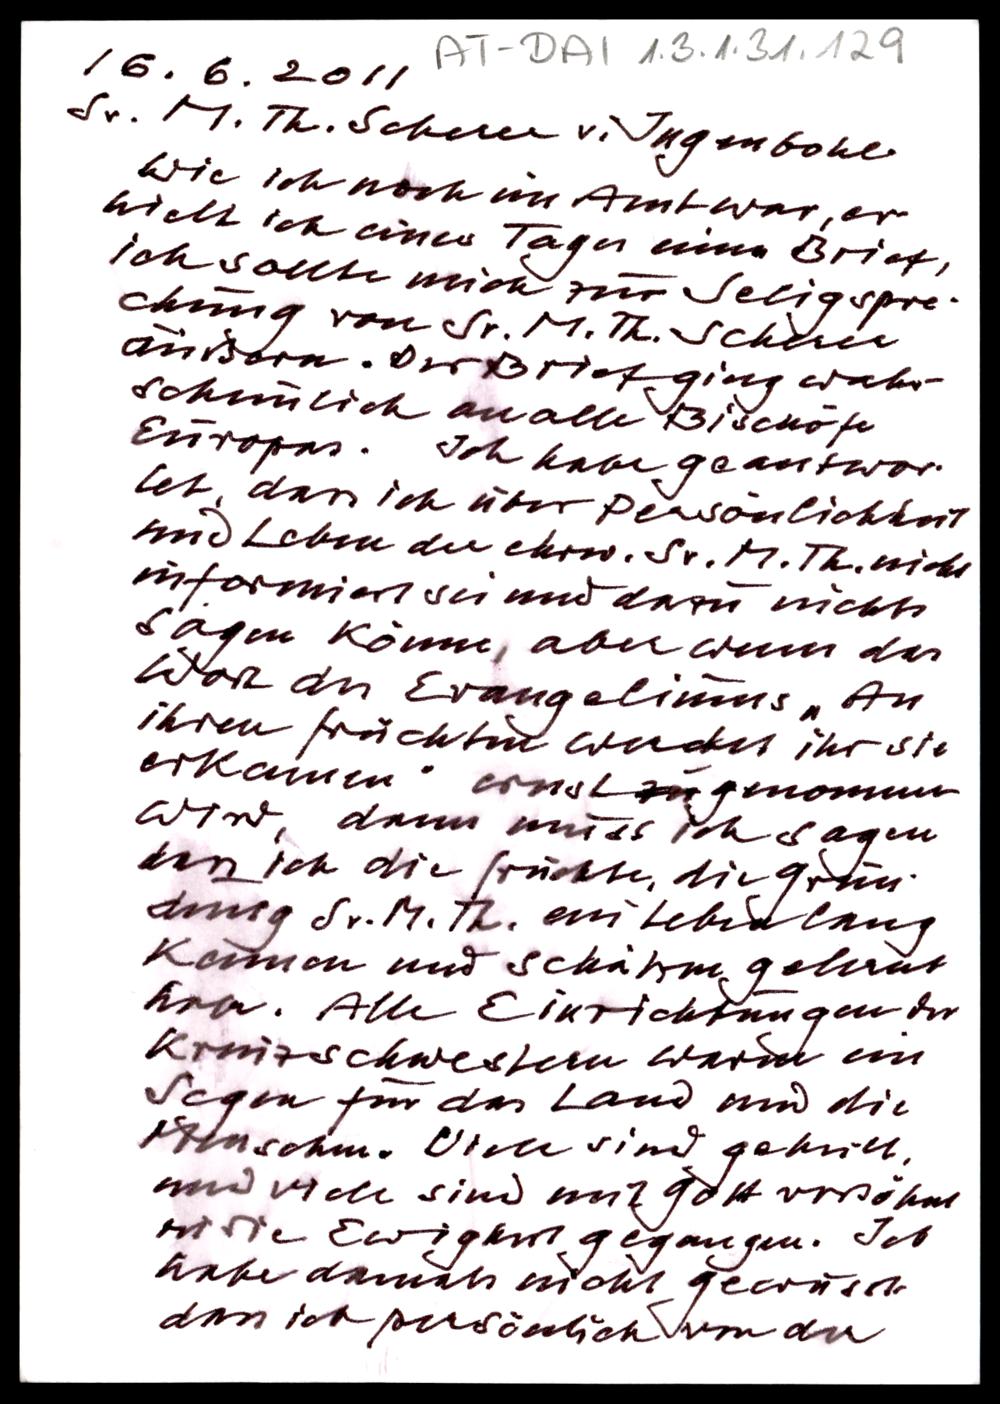 AT-DAI 1.3.1.31.129
16.6.2011
Sr. M. Th. Scherer v. Ingenbohl
Wie ich noch im Amt war, er-
hielt ich eines Tages einen Brief,
ich sollte mich zur Seligspre-
chung von Sr. M. Th. Scherer
äußern. Der Brief ging wahr-
scheinlich an alle Bischöfe
Europas. Ich habe geantwor-
tet, dass ich über Persönlichkeit
und Leben der ehrw. Sr. M. Th. nicht
informiert sei und dazu nichts
sagen könne, aber wenn das
Wort des Evangeliums „An
ihren Früchten werdet ihr sie
erkennen" ernst zu genommen
wird, dann muss ich sagen
dass ich die Früchte, die Grün-
dung Sr. M. Th. ein Leben lang
kennen und schätzen gelernt
habe. Alle Einrichtungen der
Kreuzschwestern waren ein
Segen für das Land und die
Menschen. Viele sind geheilt,
und viele sind mit Gott versöhnt
in die Ewigkeit gegangen. Ich
habe damals nicht gewusst
dass ich persönlich von der